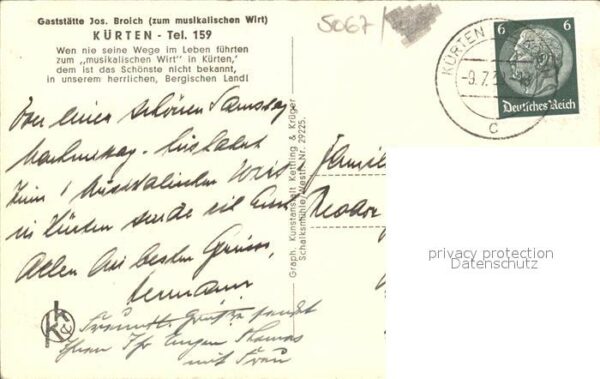 Gaststätte Jos. Broich (zum musikalischen Wirt)
KÜRTEN - Tel. 159
Wen nie seine Wege im Leben führten
zum „musikalischen Wirt" in Kürten,
dem ist das Schönste nicht bekannt,
in unserem herrlichen, Bergischen Land!
5067/
KÜRTEN
-9.7.3
c
6 6
Deutsches Reich
einen schönen Samstag
Nachmittag
zum musikalischen Wirt
in Kürten sende ich Euch
Allen die besten Grüsse,
Hermann
Freundl. Grüße sendet
Ihnen Ihr Eugen Thomas
mit Frau
Graph. Kunstanstalt Kettling & Krüger
Schalksmühle, Westf. Nr. 29225.
Familie
Theodor
privacy protection
Datenschutz